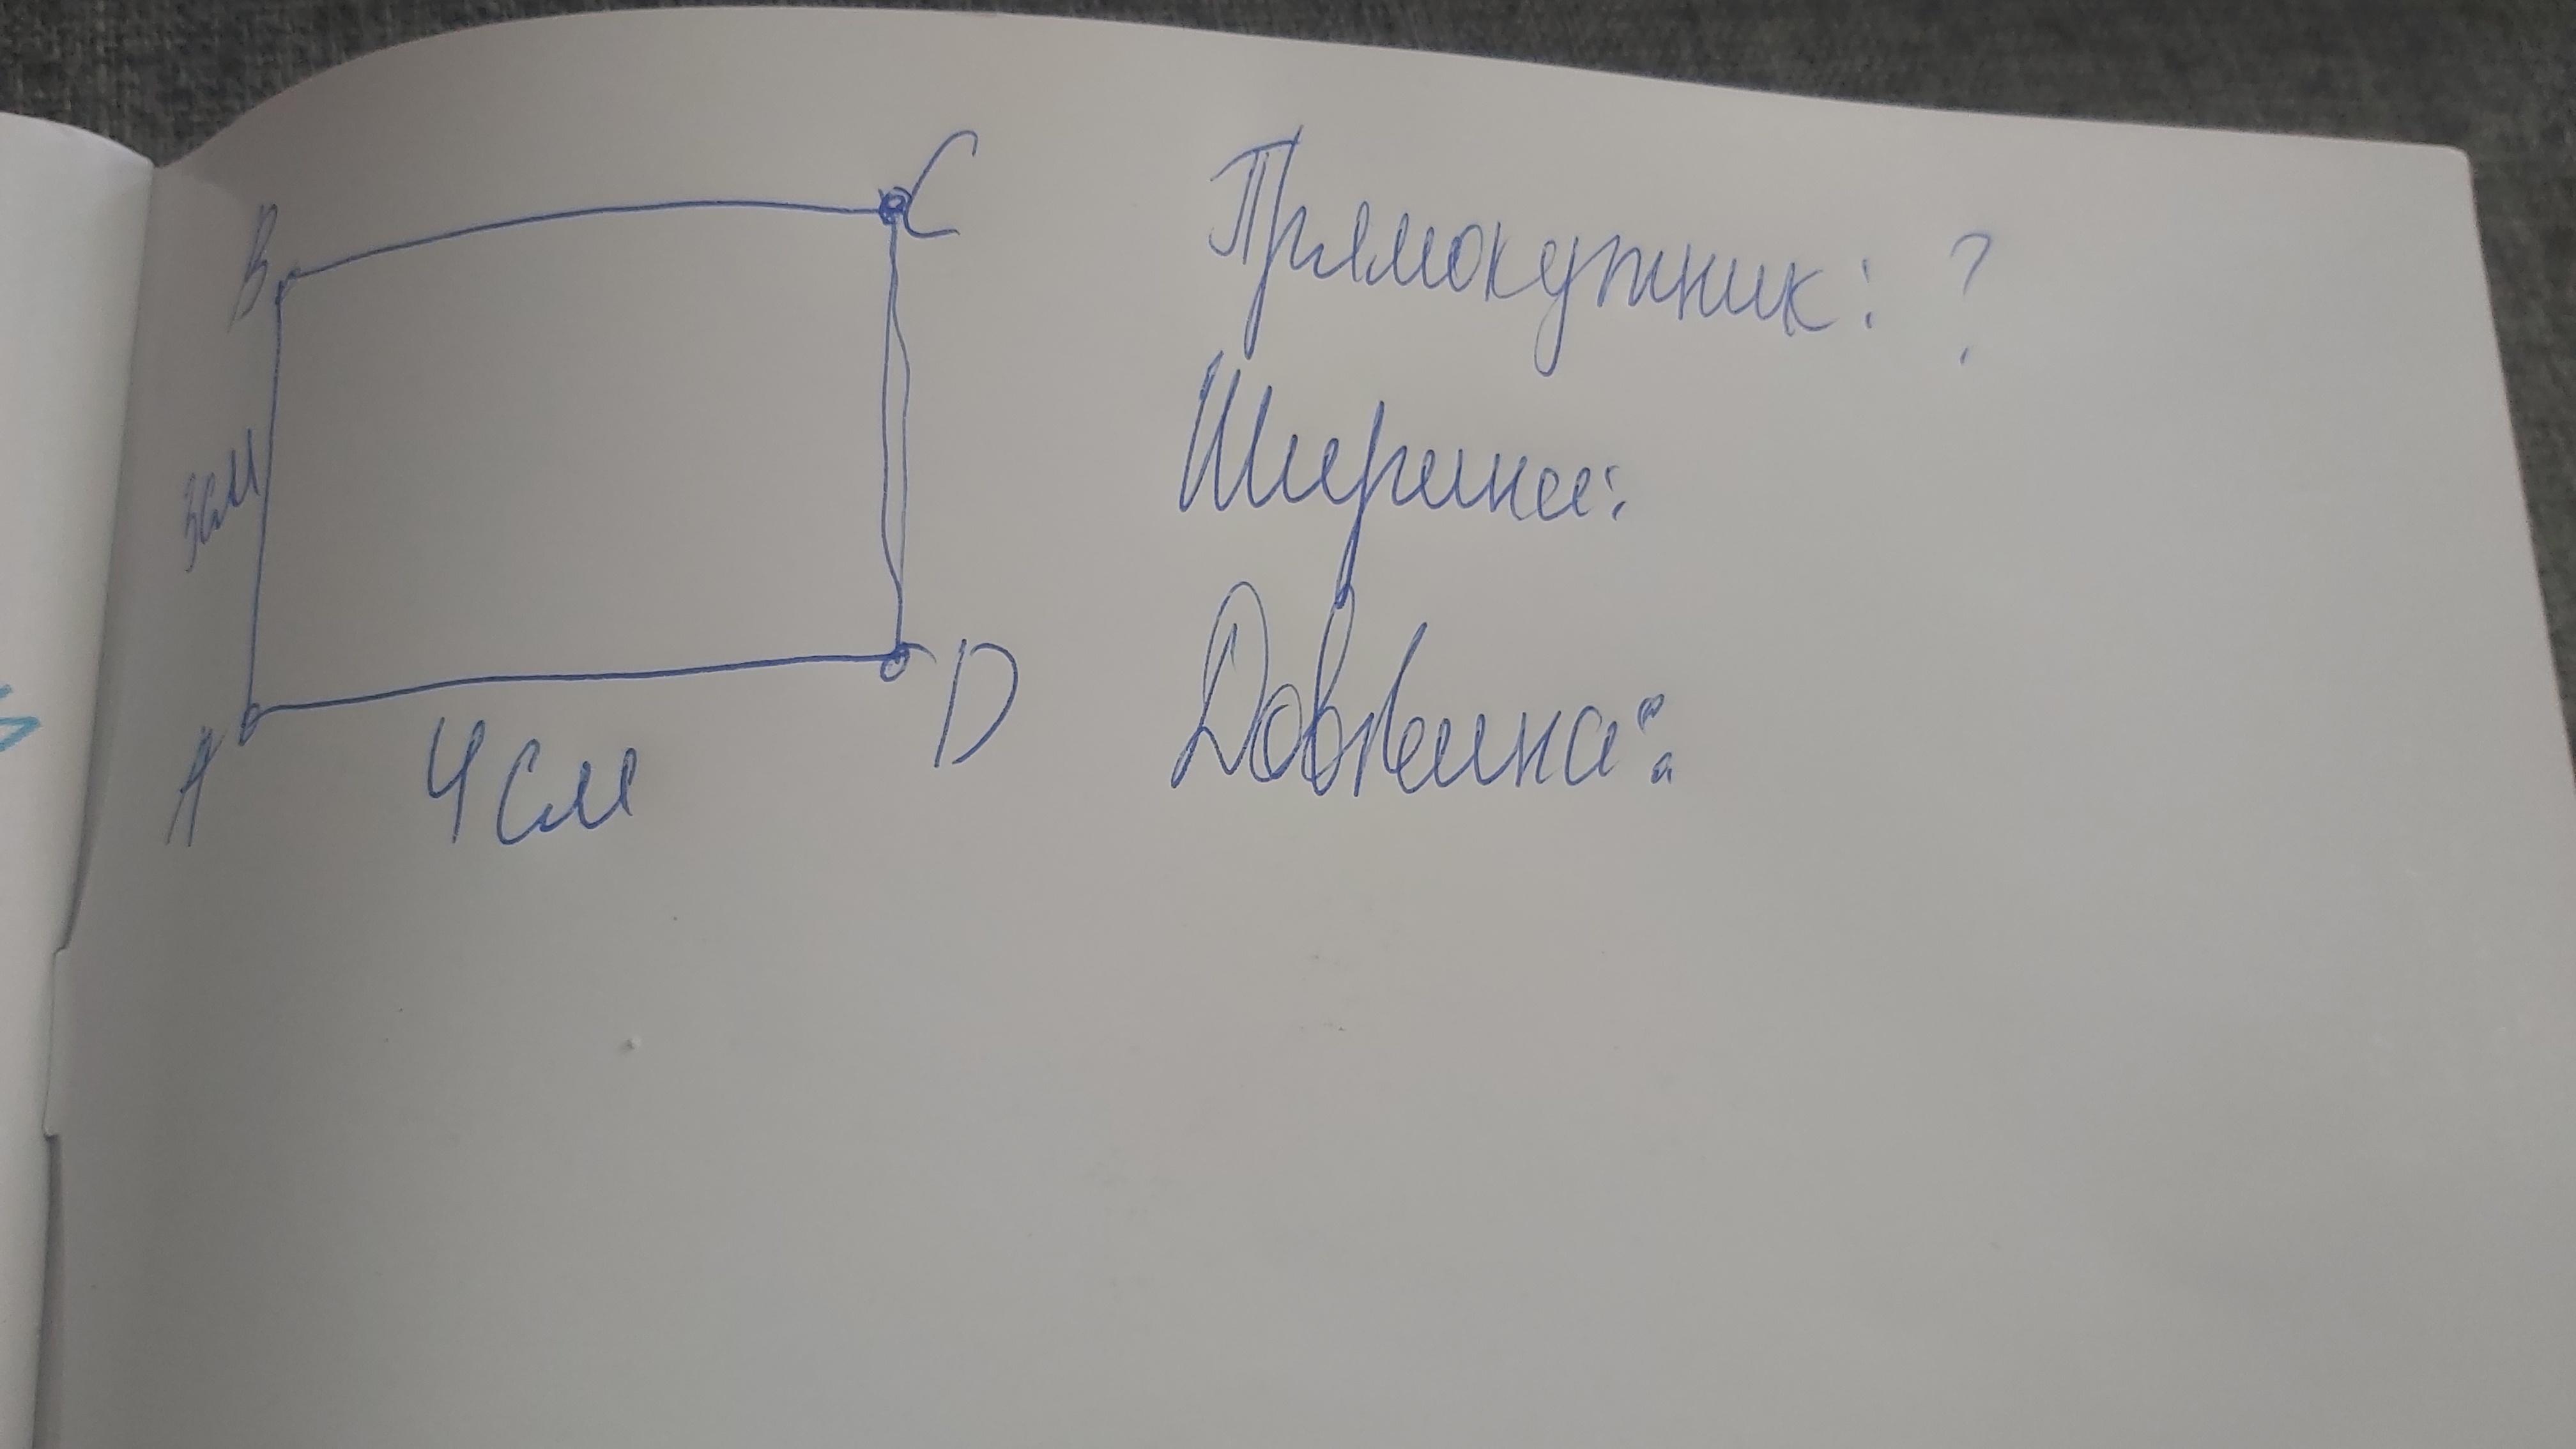 B
C
3см
A
4см
D
Прямокутник: ?
Ширина:
Довжина: